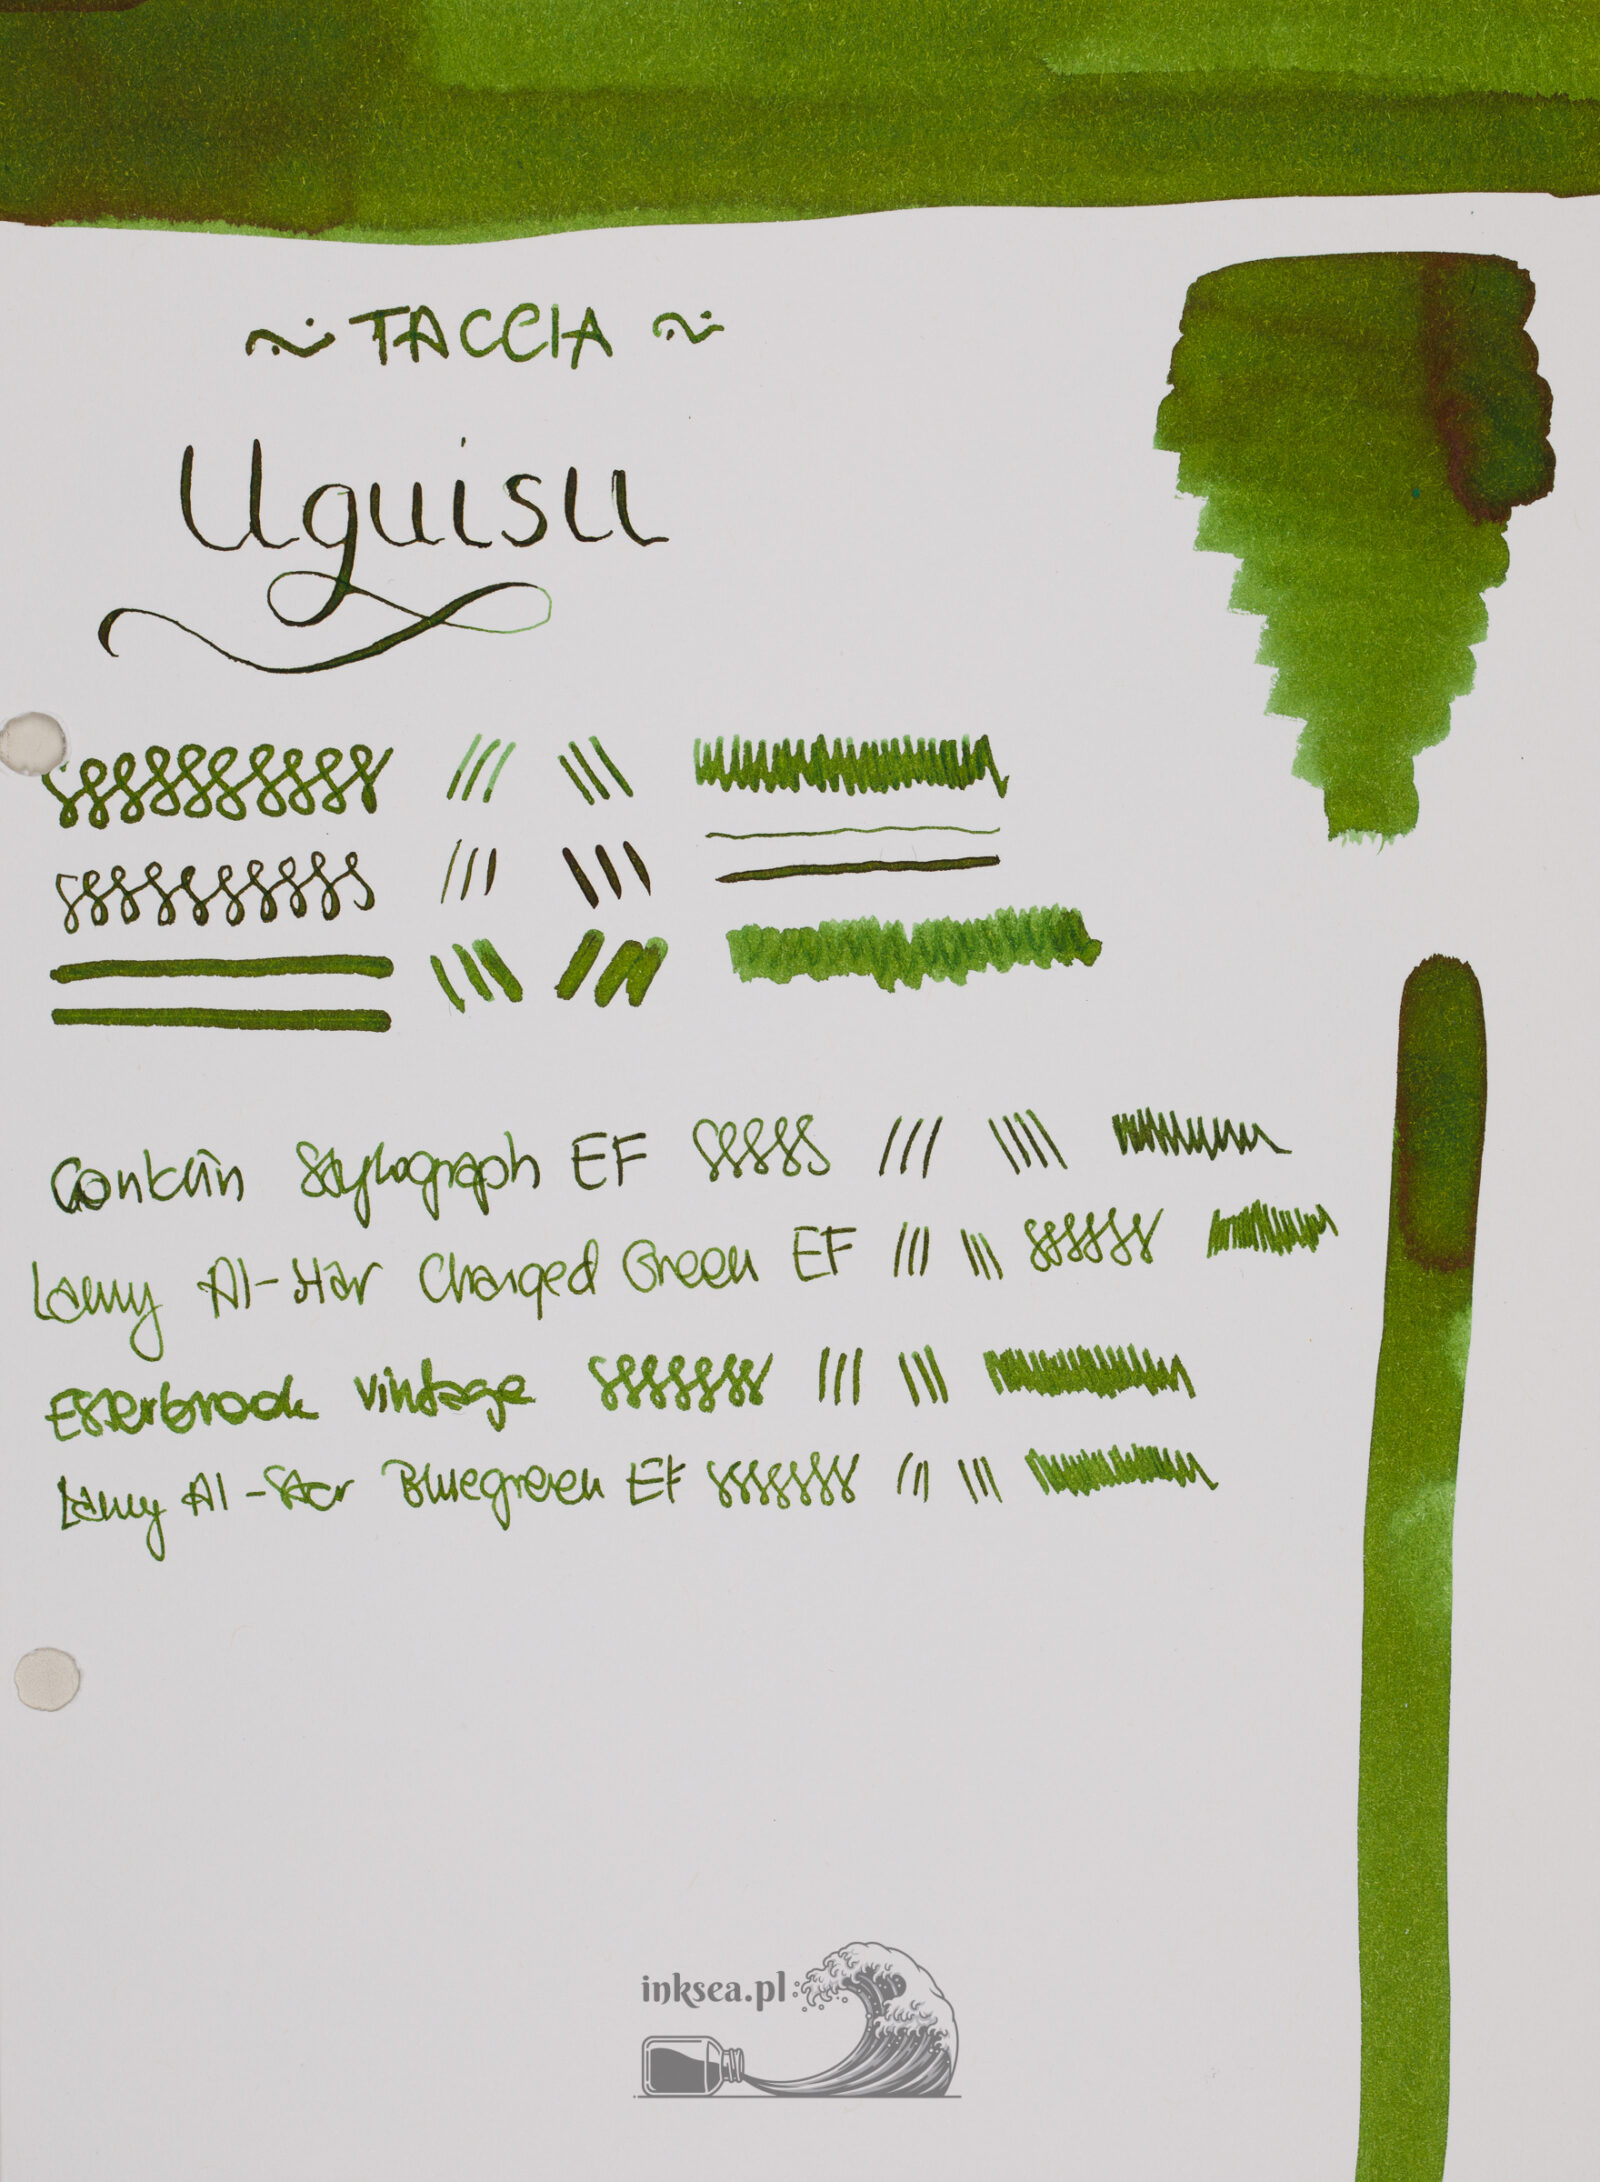 ~ TACCIA ~
Uguisu
Conklin Stylograph EF
Lamy Al-Star Charged Green EF
Esterbrook vintage
Lamy Al-Star Bluegreen EF
inksea.pl